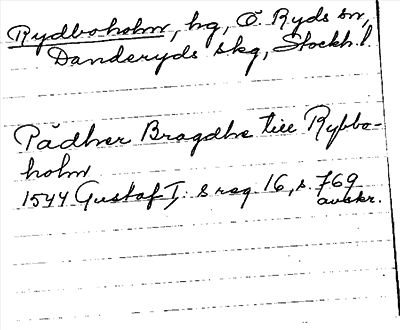 Rydboholm, hg, Ö. Ryds sn,
Danderyds skg, Stockh. l.
Pädher Bragdhe till Rybbo-
holm
1544 Gustaf I. s reg. 16, s. 769
avskr.